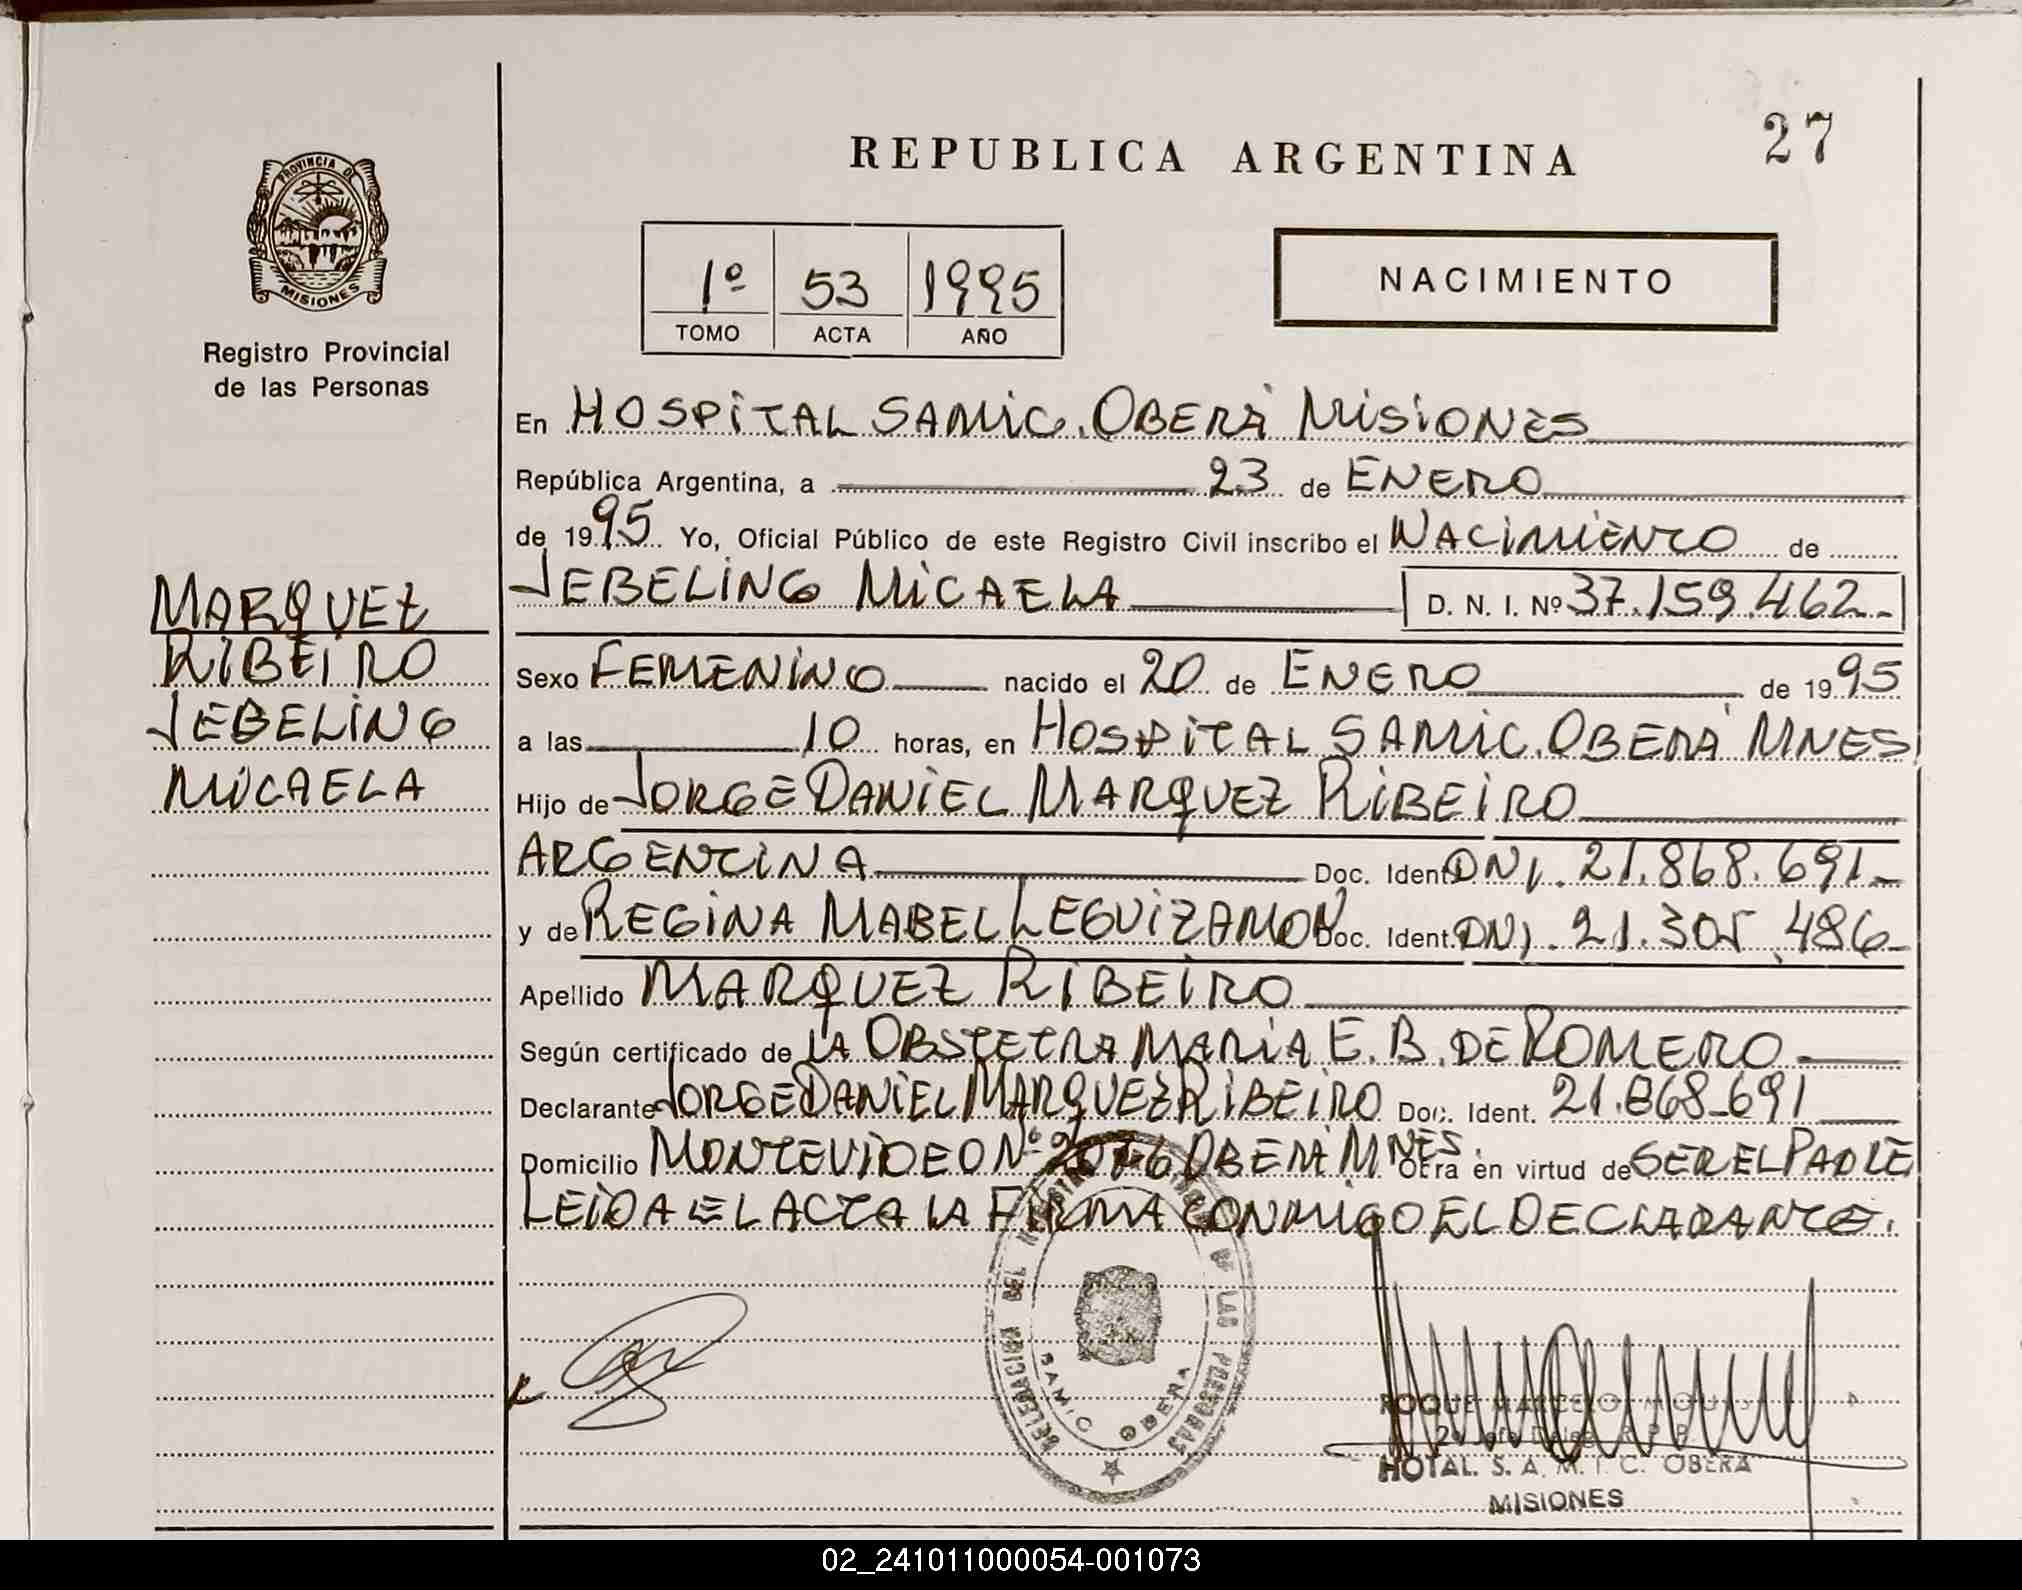 27
REPUBLICA ARGENTINA
PROVINCIA DE
MISIONES
Registro Provincial
de las Personas
1º 53 1995
TOMO ACTA AÑO
NACIMIENTO
En HOSPITAL SAMIC. OBERÁ MISIONES
República Argentina, a 23 de ENERO
de 1995 Yo, Oficial Público de este Registro Civil inscribo el NACIMIENTO de
JEBELING MICAELA D. N. I. Nº 37.159.462-
MARQUEZ
RIBEIRO
JEBELING
MICAELA
Sexo FEMENINO nacido el 20 de ENERO de 1995
a las 10 horas, en HOSPITAL SAMIC. OBERÁ MNES
Hijo de JORGE DANIEL MARQUEZ RIBEIRO
ARGENTINA Doc. Ident. DNI. 21.868.691-
y de REGINA MABEL LEGUIZAMON Doc. Ident. DNI. 21.305.486-
Apellido MARQUEZ RIBEIRO
Según certificado de LA OBSTETRA MARIA E. B. DE ROMERO
Declarante JORGE DANIEL MARQUEZ RIBEIRO Doc. Ident. 21.868.691
Domicilio MONTEVIDEO Nº OBERÁ MNES Otra en virtud de SER EL PADRE
LEIDA EL ACTA LA FIRMA CONMIGO EL DECLARANTE.
DELEGACION DEL REGISTRO DE LAS PERSONAS
SAMIC OBERA
ROQUE MARCELO
HOTAL. S. A. M. I. C. OBERA
MISIONES
02_241011000054-001073